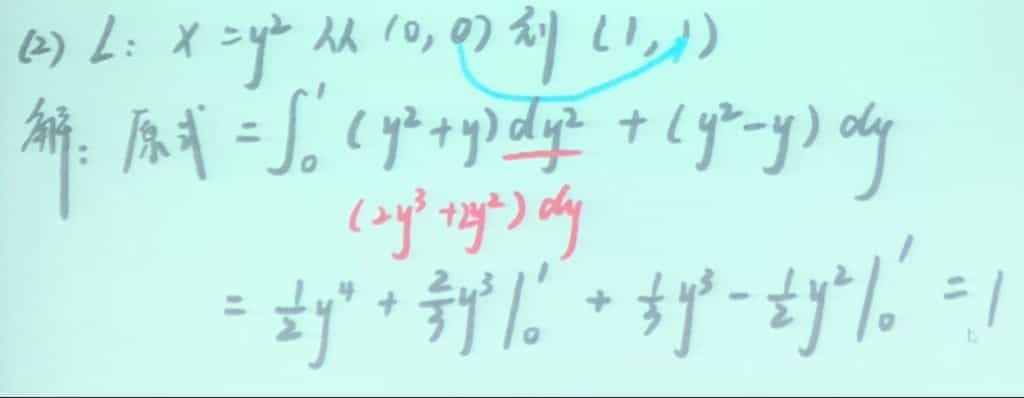 (2) L: x = y² 从 (0,0) 到 (1,1)
解: 原式 = ∫₀¹ (y²+y) dy² + (y²-y) dy
(2y³+2y²) dy
= 1/2 y⁴ + 2/3 y³ |₀¹ + 1/3 y³ - 1/2 y² |₀¹ = 1